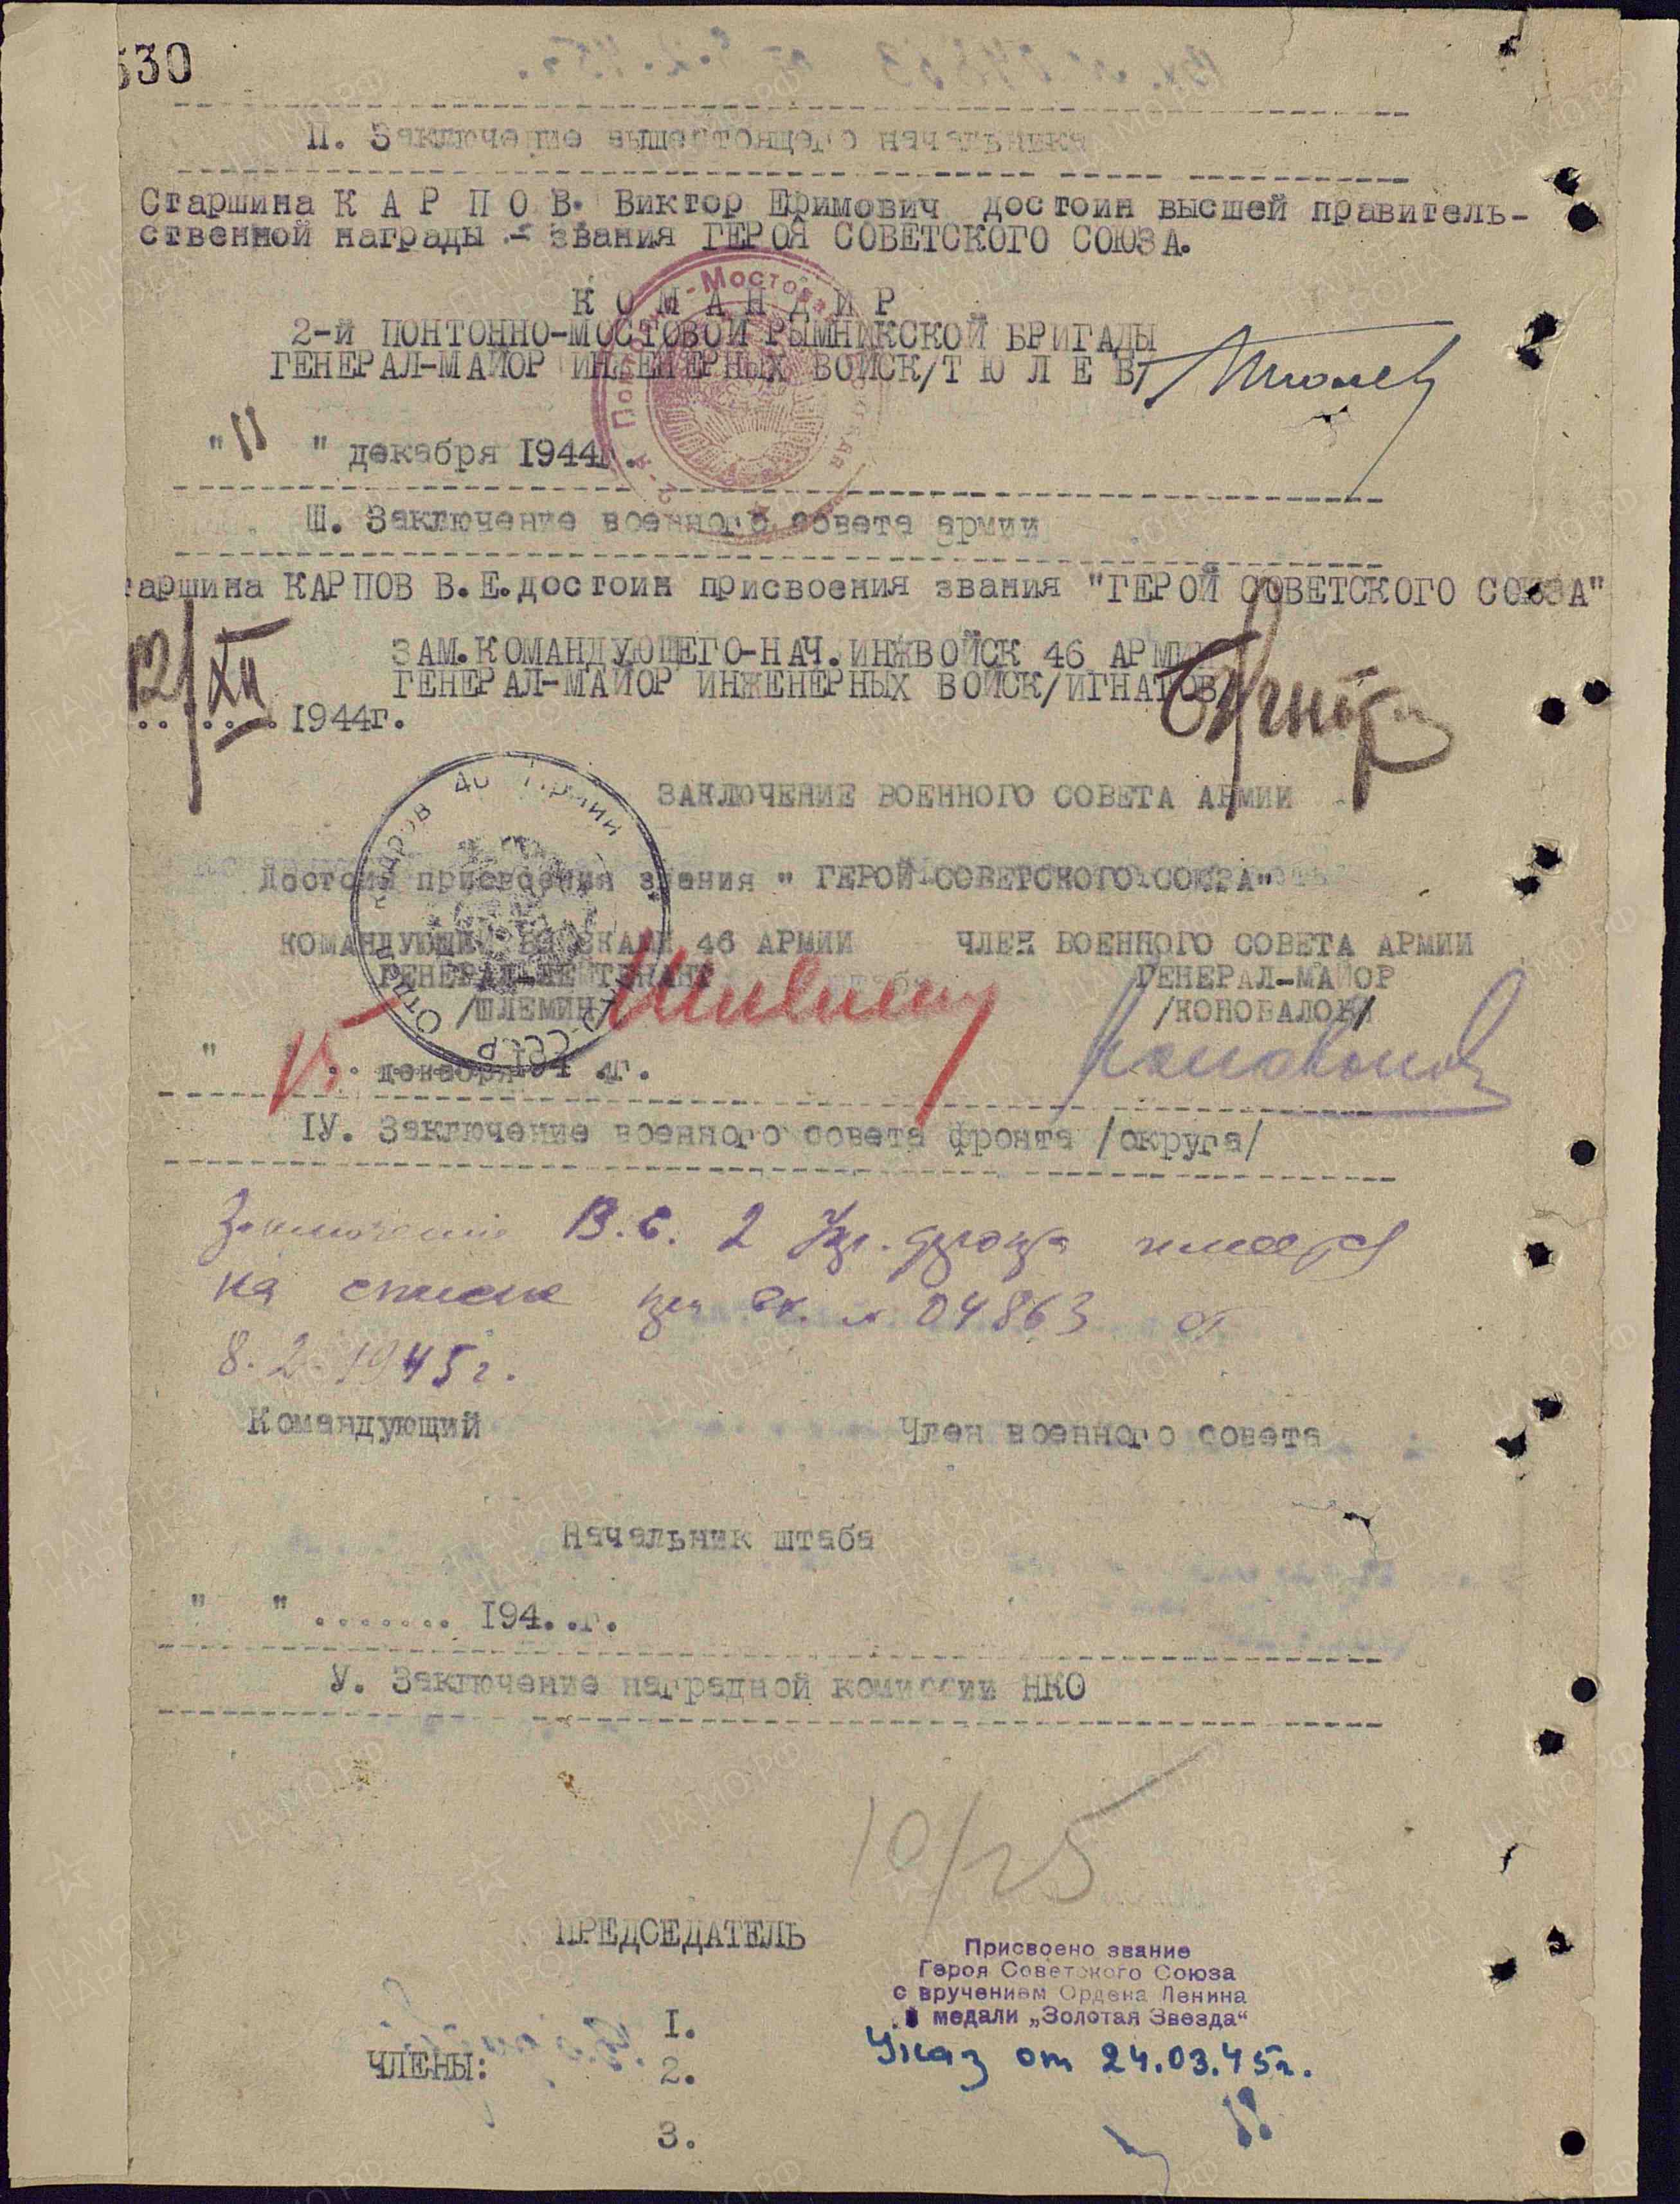 530
II. Заключение вышестоящего начальника
Старшина К А Р П О В. Виктор Ефимович достоин высшей правитель-
ственной награды - звания ГЕРОЯ СОВЕТСКОГО СОЮЗА.
К О М А Н Д И Р
2-й ПОНТОННО-МОСТОВОЙ РЫМНИКСКОЙ БРИГАДЫ
ГЕНЕРАЛ-МАЙОР ИНЖЕНЕРНЫХ ВОЙСК/Т Ю Л Е В/
"11 " декабря 1944г.
Ш. Заключение военного совета армии
таршина КАРПОВ В.Е.достоин присвоения звания "ГЕРОЙ СОВЕТСКОГО СОЮЗА"
ЗАМ.КОМАНДУЮЩЕГО-НАЧ.ИНЖВОЙСК 46 АРМИИ
ГЕНЕРАЛ-МАЙОР ИНЖЕНЕРНЫХ ВОЙСК/ИГНАТОВ/
12/XII 1944г.
Отдел кадров 46 Армии
СССР
ЗАКЛЮЧЕНИЕ ВОЕННОГО СОВЕТА АРМИИ
Достоин присвоения звания " ГЕРОЙ СОВЕТСКОГО СОЮЗА"
КОМАНДУЮЩИЙ ВОЙСКАМИ 46 АРМИИ ЧЛЕН ВОЕННОГО СОВЕТА АРМИИ
ГЕНЕРАЛ-ЛЕЙТЕНАНТ ГЕНЕРАЛ-МАЙОР
/ШЛЕМИН/ /КОНОВАЛОВ/
" 15 декабря 194 .г.
IУ. Заключение военного совета фронта /округа/
Заключение В.С. 2 Укр. фронта имеется
на списке при вх. № 04863 от
8.2.1945г.
Командующий Член военного совета
Начальник штаба
" " ........ 194..г.
У. Заключение наградной комиссии НКО
10/25
ПРЕДСЕДАТЕЛЬ
Присвоено звание
Героя Советского Союза
с вручением Ордена Ленина
и медали „Золотая Звезда“
Указ от 24.03.45г.
ЧЛЕНЫ:
1.
2.
3.